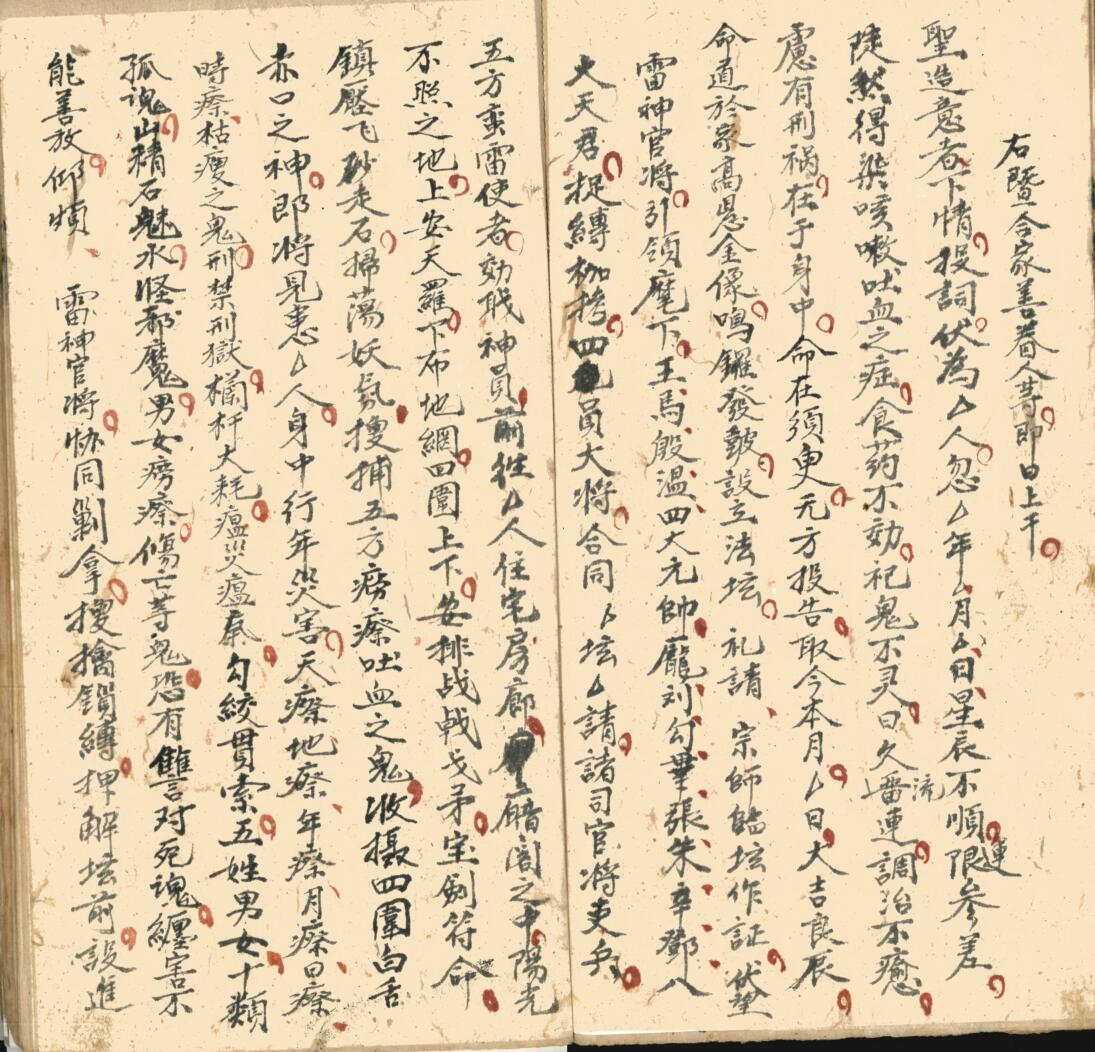 右暨合家善眷人等即日上干
聖造意者下情投詞伏為厶人忽厶年厶月厶日星辰不順限運參差
陡然得染咳嗽吐血之症食药不効祀鬼不灵日久畨連流調治不癒
慮有刑祸在于身中命在須臾无方投告取今本月厶日大吉良辰
命道於家高懸金像鳴鑼發皷設立法坛礼請宗師臨坛作証伏望
雷神官将引領麾下王馬殷溫四大元帥龐刘苟畢張朱辛鄧八
大天君捉縛枷拷四員大将合同厶坛厶請諸司官将吏兵
五方蛮雷使者効职神員前往厶人住宅房廊暗阁之中陽光
不照之地上安天羅下布地網四圍上下安排战戟戈矛宝劍符命
鎮壓飞砂走石掃蕩妖氛搜捕五方痨瘵吐血之鬼收摄四圍白舌
赤口之神即将見患厶人身中行年災害天瘵地瘵年瘵月瘵日瘵
時瘵枯瘦之鬼刑禁刑獄欄杆大耗瘟災瘟瘴勾絞貫索五姓男女十類
孤魂山精石魅水怪邪魔男女痨瘵傷亡等鬼恐有讐对死魂纏害不
能善放仰煩雷神官将协同剿拿搜擒鎖縛押解坛前設進